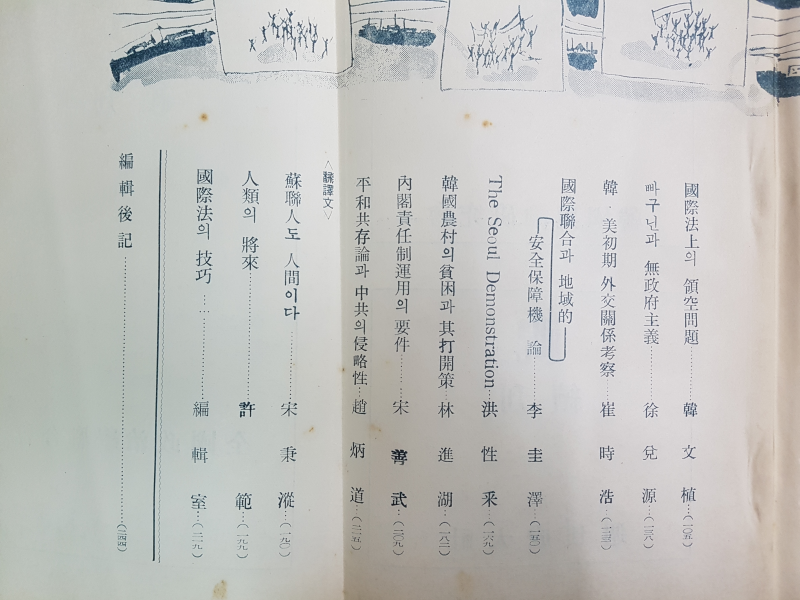 國際法上의 領空問題………韓文植…(一〇五)
빠구닌과 無政府主義………徐兌源
韓·美初期 外交關係考察…崔時浩
國際聯合과 地域的
安全保障機 論………李圭澤…(一五〇)
The Seoul Demonstration…洪性釆…(一六九)
韓國農村의 貧困과 其打開策…林進湖…(一八二)
內閣責任制運用의 要件………宋善武…(二〇九)
平和共存論과 中共의 侵略性…趙炳道…(二一五)
<飜譯文>
蘇聯人도 人間이다………宋秉瀅…(一九〇)
人類의 將來………許範…(一九九)
國際法의 技巧………編輯室…(二一九)
編輯後記………(二四四)